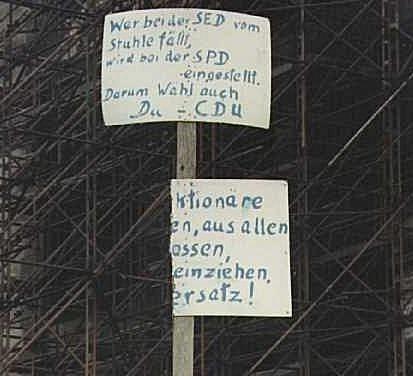 Wer bei der SED vom
Stuhle fällt,
wird bei der SPD
eingestellt.
Darum Wähl auch
Du - CDU
ktionäre
en, aus allen
ossen,
einziehen.
ersatz!